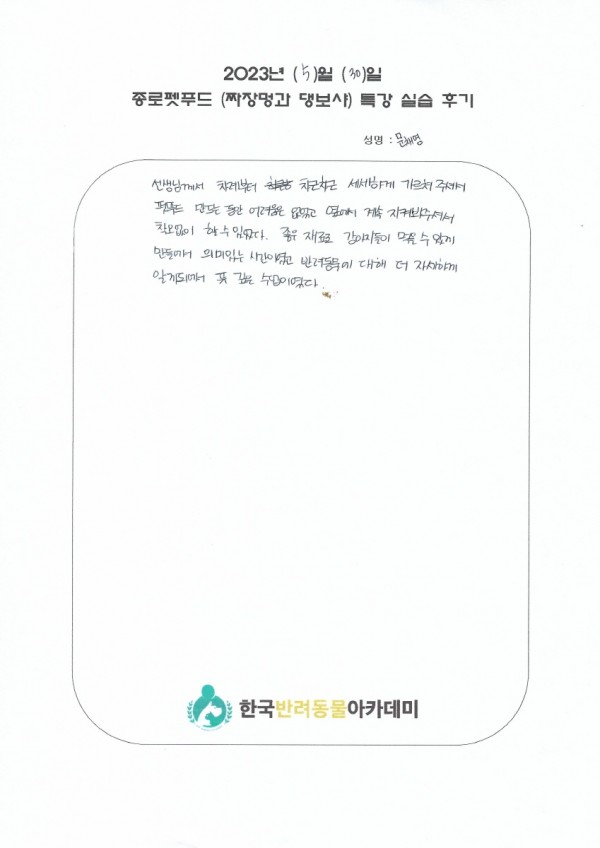 2023년 (5)월 (30)일
종로펫푸드 (짜장멍과 댕보샤) 특강 실습 후기
성명 : 문채영
선생님께서 차례부터 차근차근 세세하게 가르쳐 주셔서
펫푸드 만드는 동안 어려움은 없었고 옆에서 계속 지켜봐주셔서
착오없이 할 수 있었다. 좋은 재료로 강아지들이 먹을 수 있게
만들어서 의미있는 시간이였고 반려동물에 대해 더 자세하게
알게되어서 뜻 깊은 수업이였다.
한국반려동물아카데미